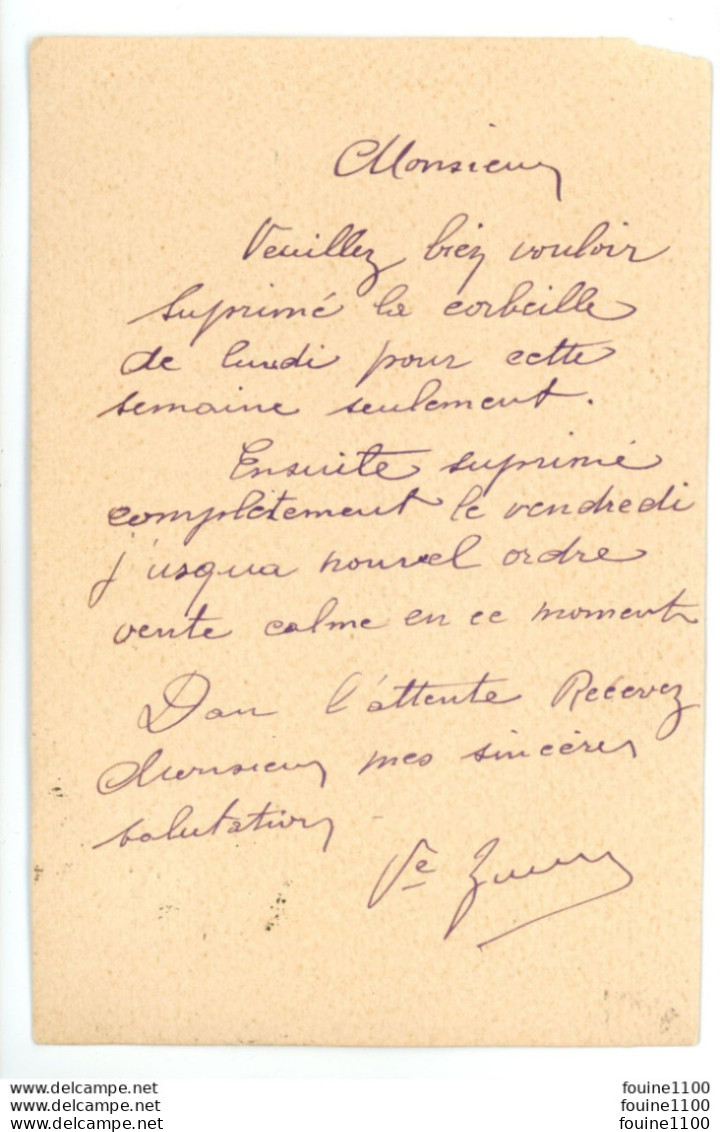 Monsieur
Veuillez bien vouloir
suprimé la corbeille
de lundi pour cette
semaine seulement.
Ensuite suprimé
complètement le vendredi
j'usqua nouvel ordre
vente calme en ce moment
Dan l'attente Recevez
Monsieur mes sincères
salutations
Ve
www.delcampe.net
www.delcampe.net
www.delcampe.net
fouine1100
fouine1100
fouine1100